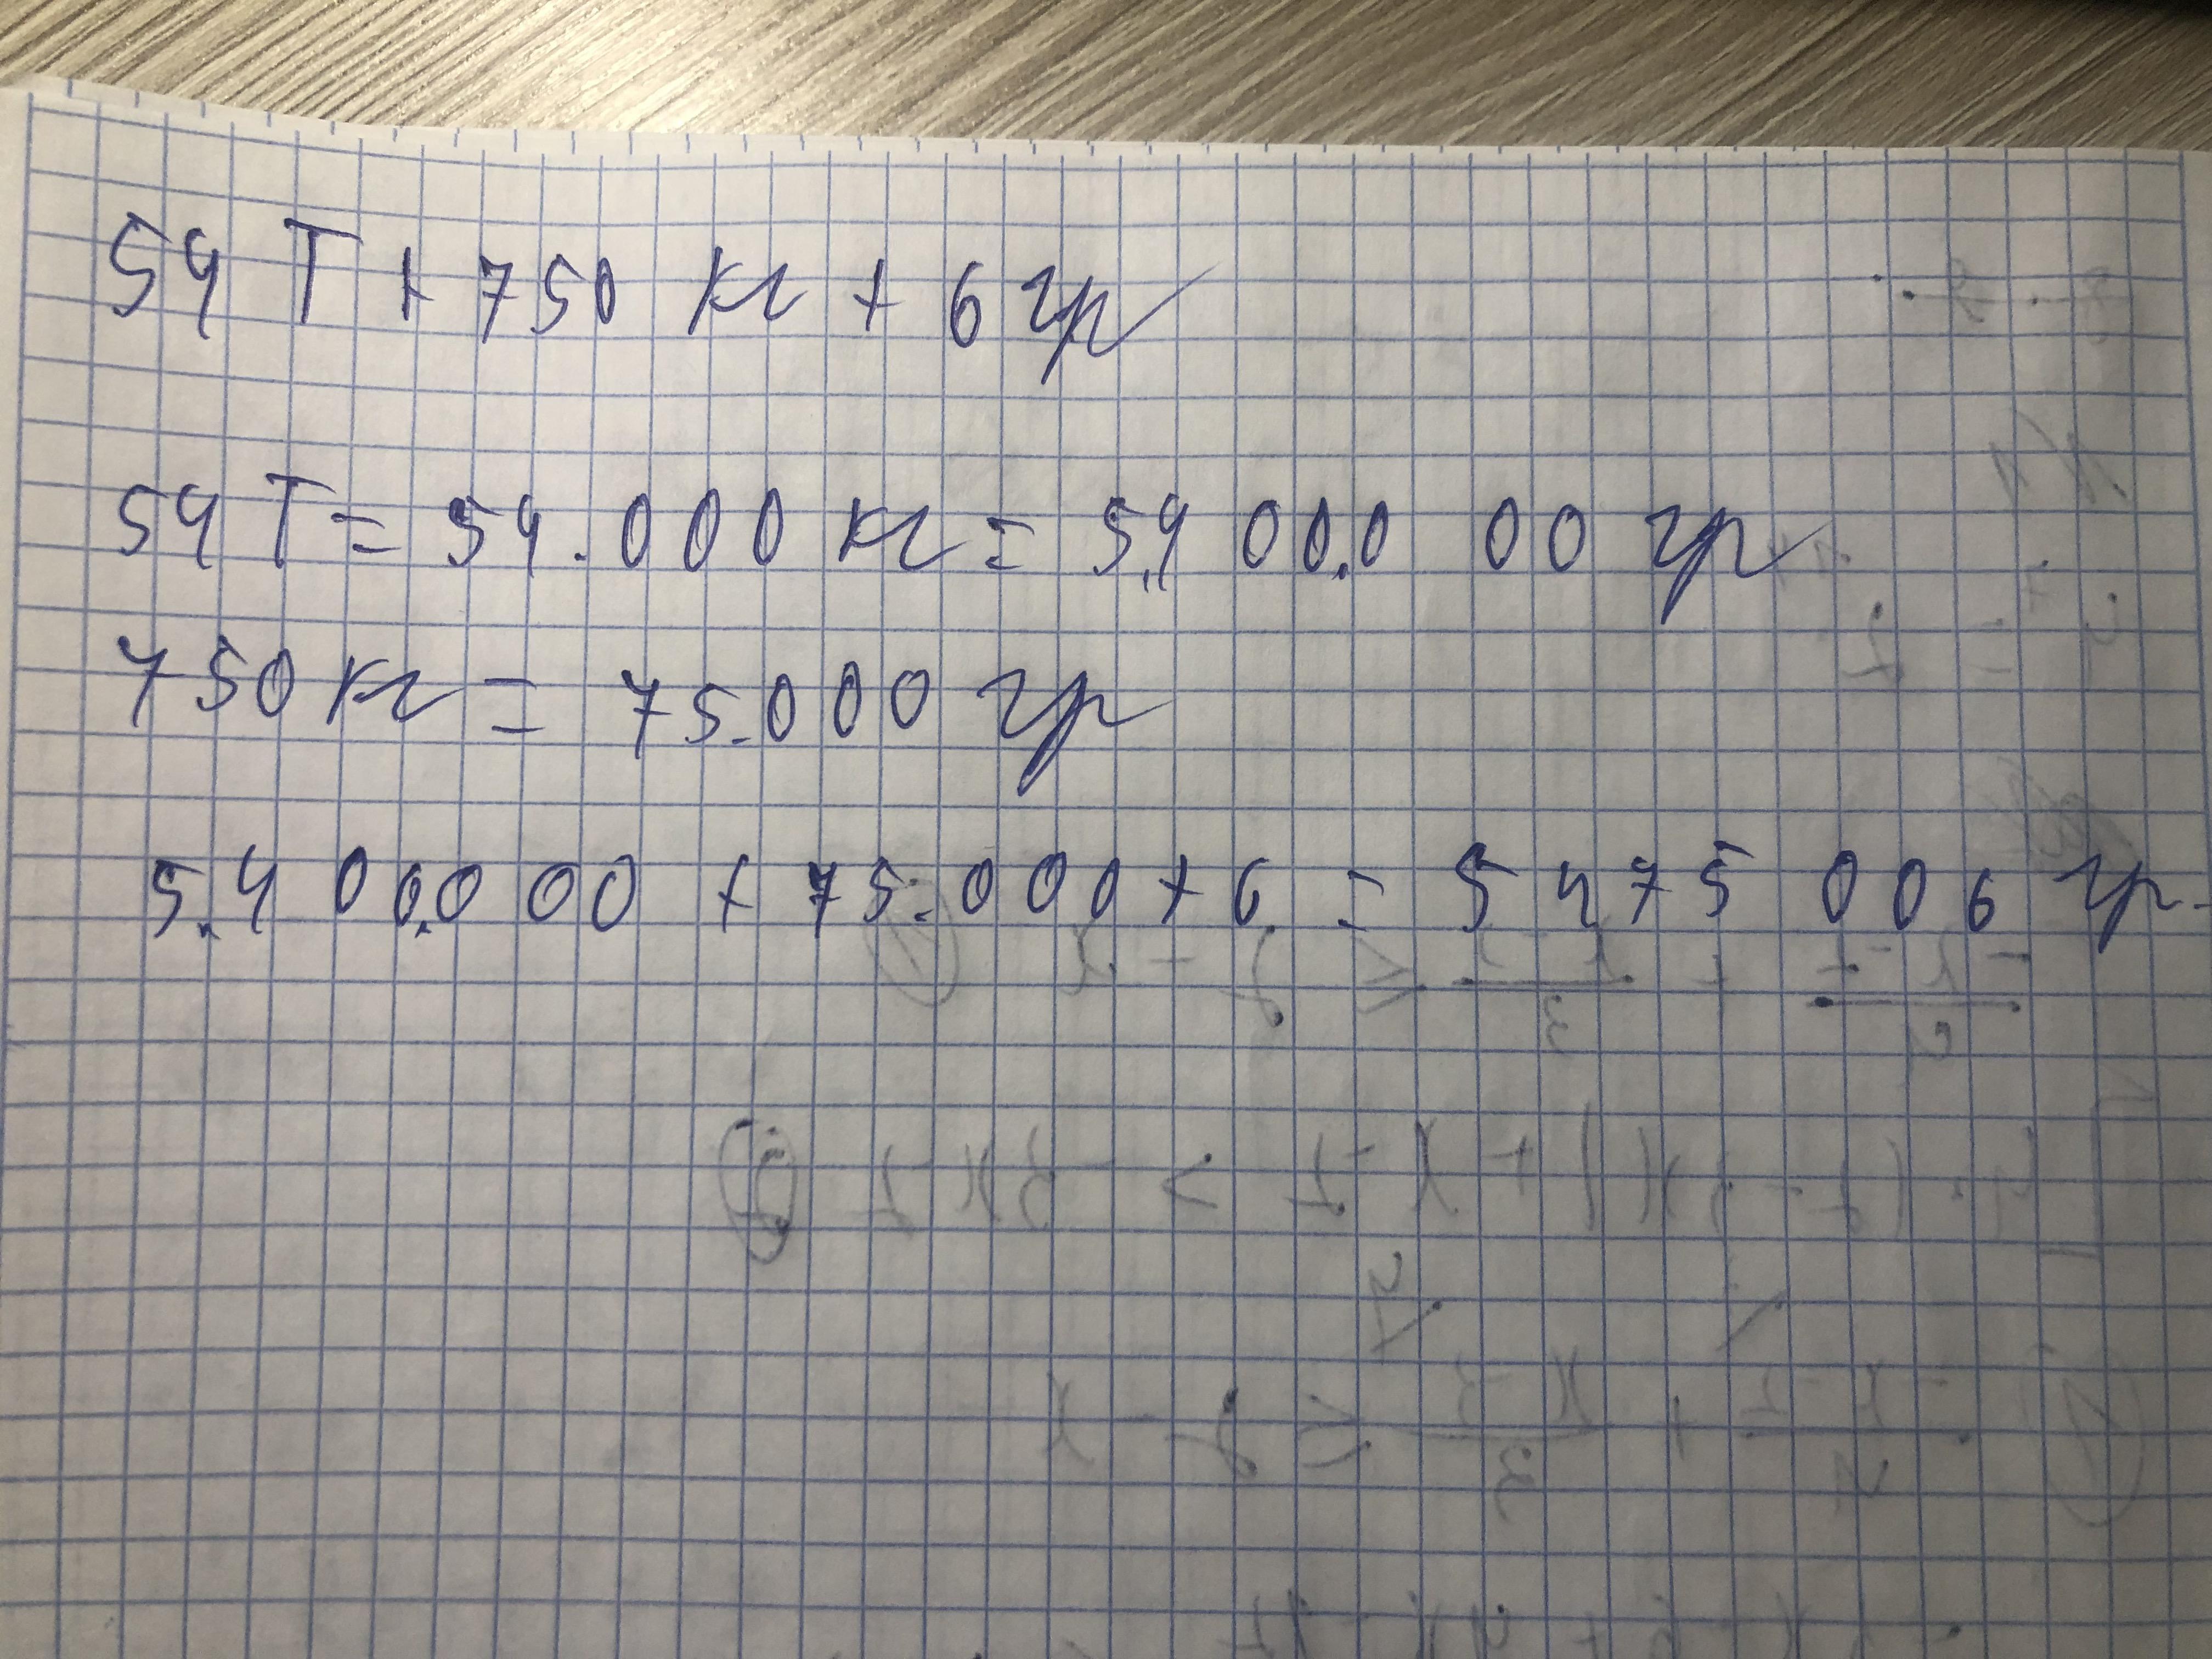 54 Т + 750 кг + 6 гр
54 Т = 54.000 кг = 5.400.000 гр
750 кг = 75.000 гр
5.400.000 + 75.000 + 6 = 5475 006 гр.